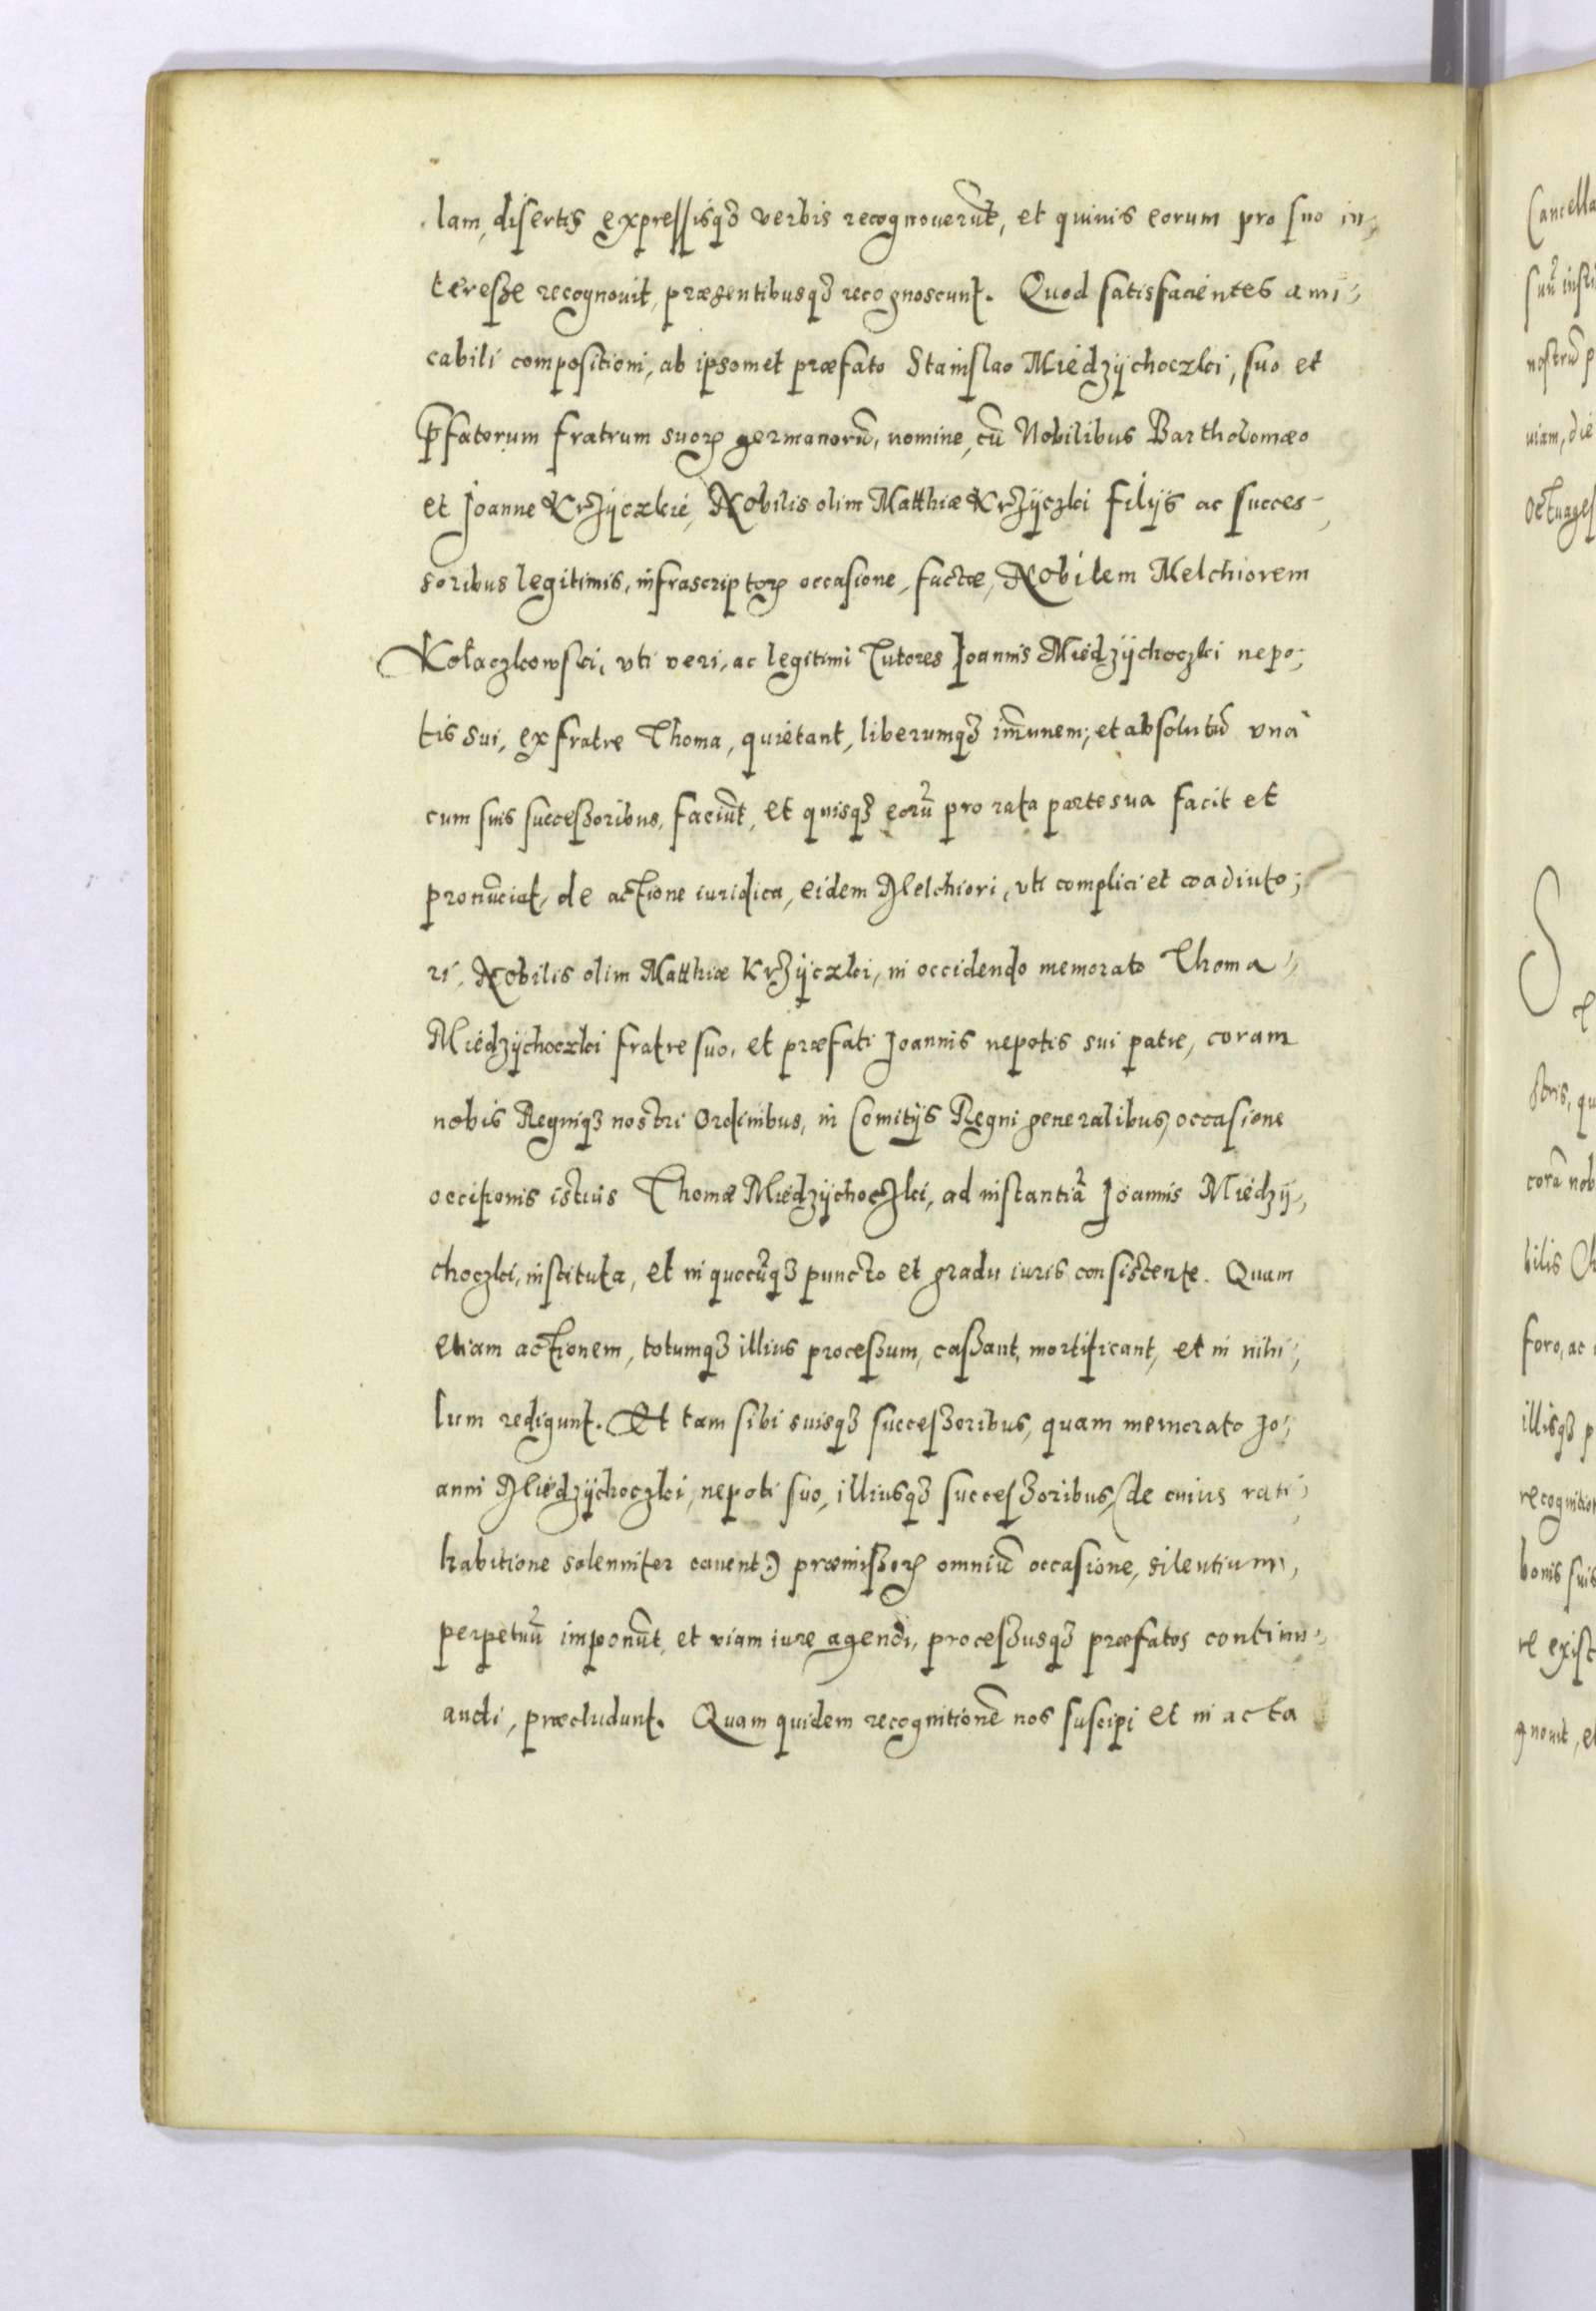 lam, disertis expressisqꝫ verbis recognouerūt, et quiuis eorum pro suo in,
teresse recognouit, præsentibusqꝫ recognoscunt. Quod satisfacientes ami,
cabili compositioni, ab ipsomet præfato Stanislao Miedzÿchoczki, suo et
p̄fatorum fratrum suoꝝ germanorū, nomine, cū Nobilibus Bartholomæo
et Joanne Krzÿczkie, Nobilis olim Matthiæ Krzÿczki filijs ac succes,
soribus legitimis, infrascriptoꝝ occasione, factæ, Nobilem Melchiorem
Kołaczkowski, vti veri, ac legitimi Tutores Joannis Miedzÿchoczki nepo,
tis sui, ex fratre Thoma, quietant, liberumqꝫ im̄unem, et absolutū vnà
cum suis successoribus, faciūt, et quisqꝫ eorū pro rata parte sua facit et
pronūciat, de actione iuridica, eidem Melchiori, vti complici et coadiuto,
ri, Nobilis olim Matthiæ Krzÿczki, in occidendo memorato Thoma,
Miedzÿchoczki fratre suo, et præfati Joannis nepotis sui patre, coram
nobis Regniqꝫ nostri Ordinibus, in Comitijs Regni generalibus, occasione
occisionis istius Thomæ Miedzÿchoczki, ad instantiā Joannis Miedzÿ,
choczki, instituta, et in quocūqꝫ puncto et gradu iuris consistente. Quam
etiam actionem, totumqꝫ illius processum, cassant, mortificant, et in nihi,
lum redigunt. Et tam sibi suisqꝫ successoribus, quam memorato Jo,
anni Miedzÿchoczki, nepoti suo, illiusqꝫ successoribus, (de cuius rati,
habitione solenniter cauent) præmissoꝝ omniū occasione, silentium,
perpetuū imponūt, et viam iure agendi, processusqꝫ præfatos continu,
andi, præcludunt. Quam quidem recognitionē nos suscipi et in acta
Cancella
suū insti
nostrū p
uiam, die
octuages
S
stris, qu
corā nob
bilis
foro, ac
illisqꝫ p
recognition
bonis suis
re exist
gnouit, et